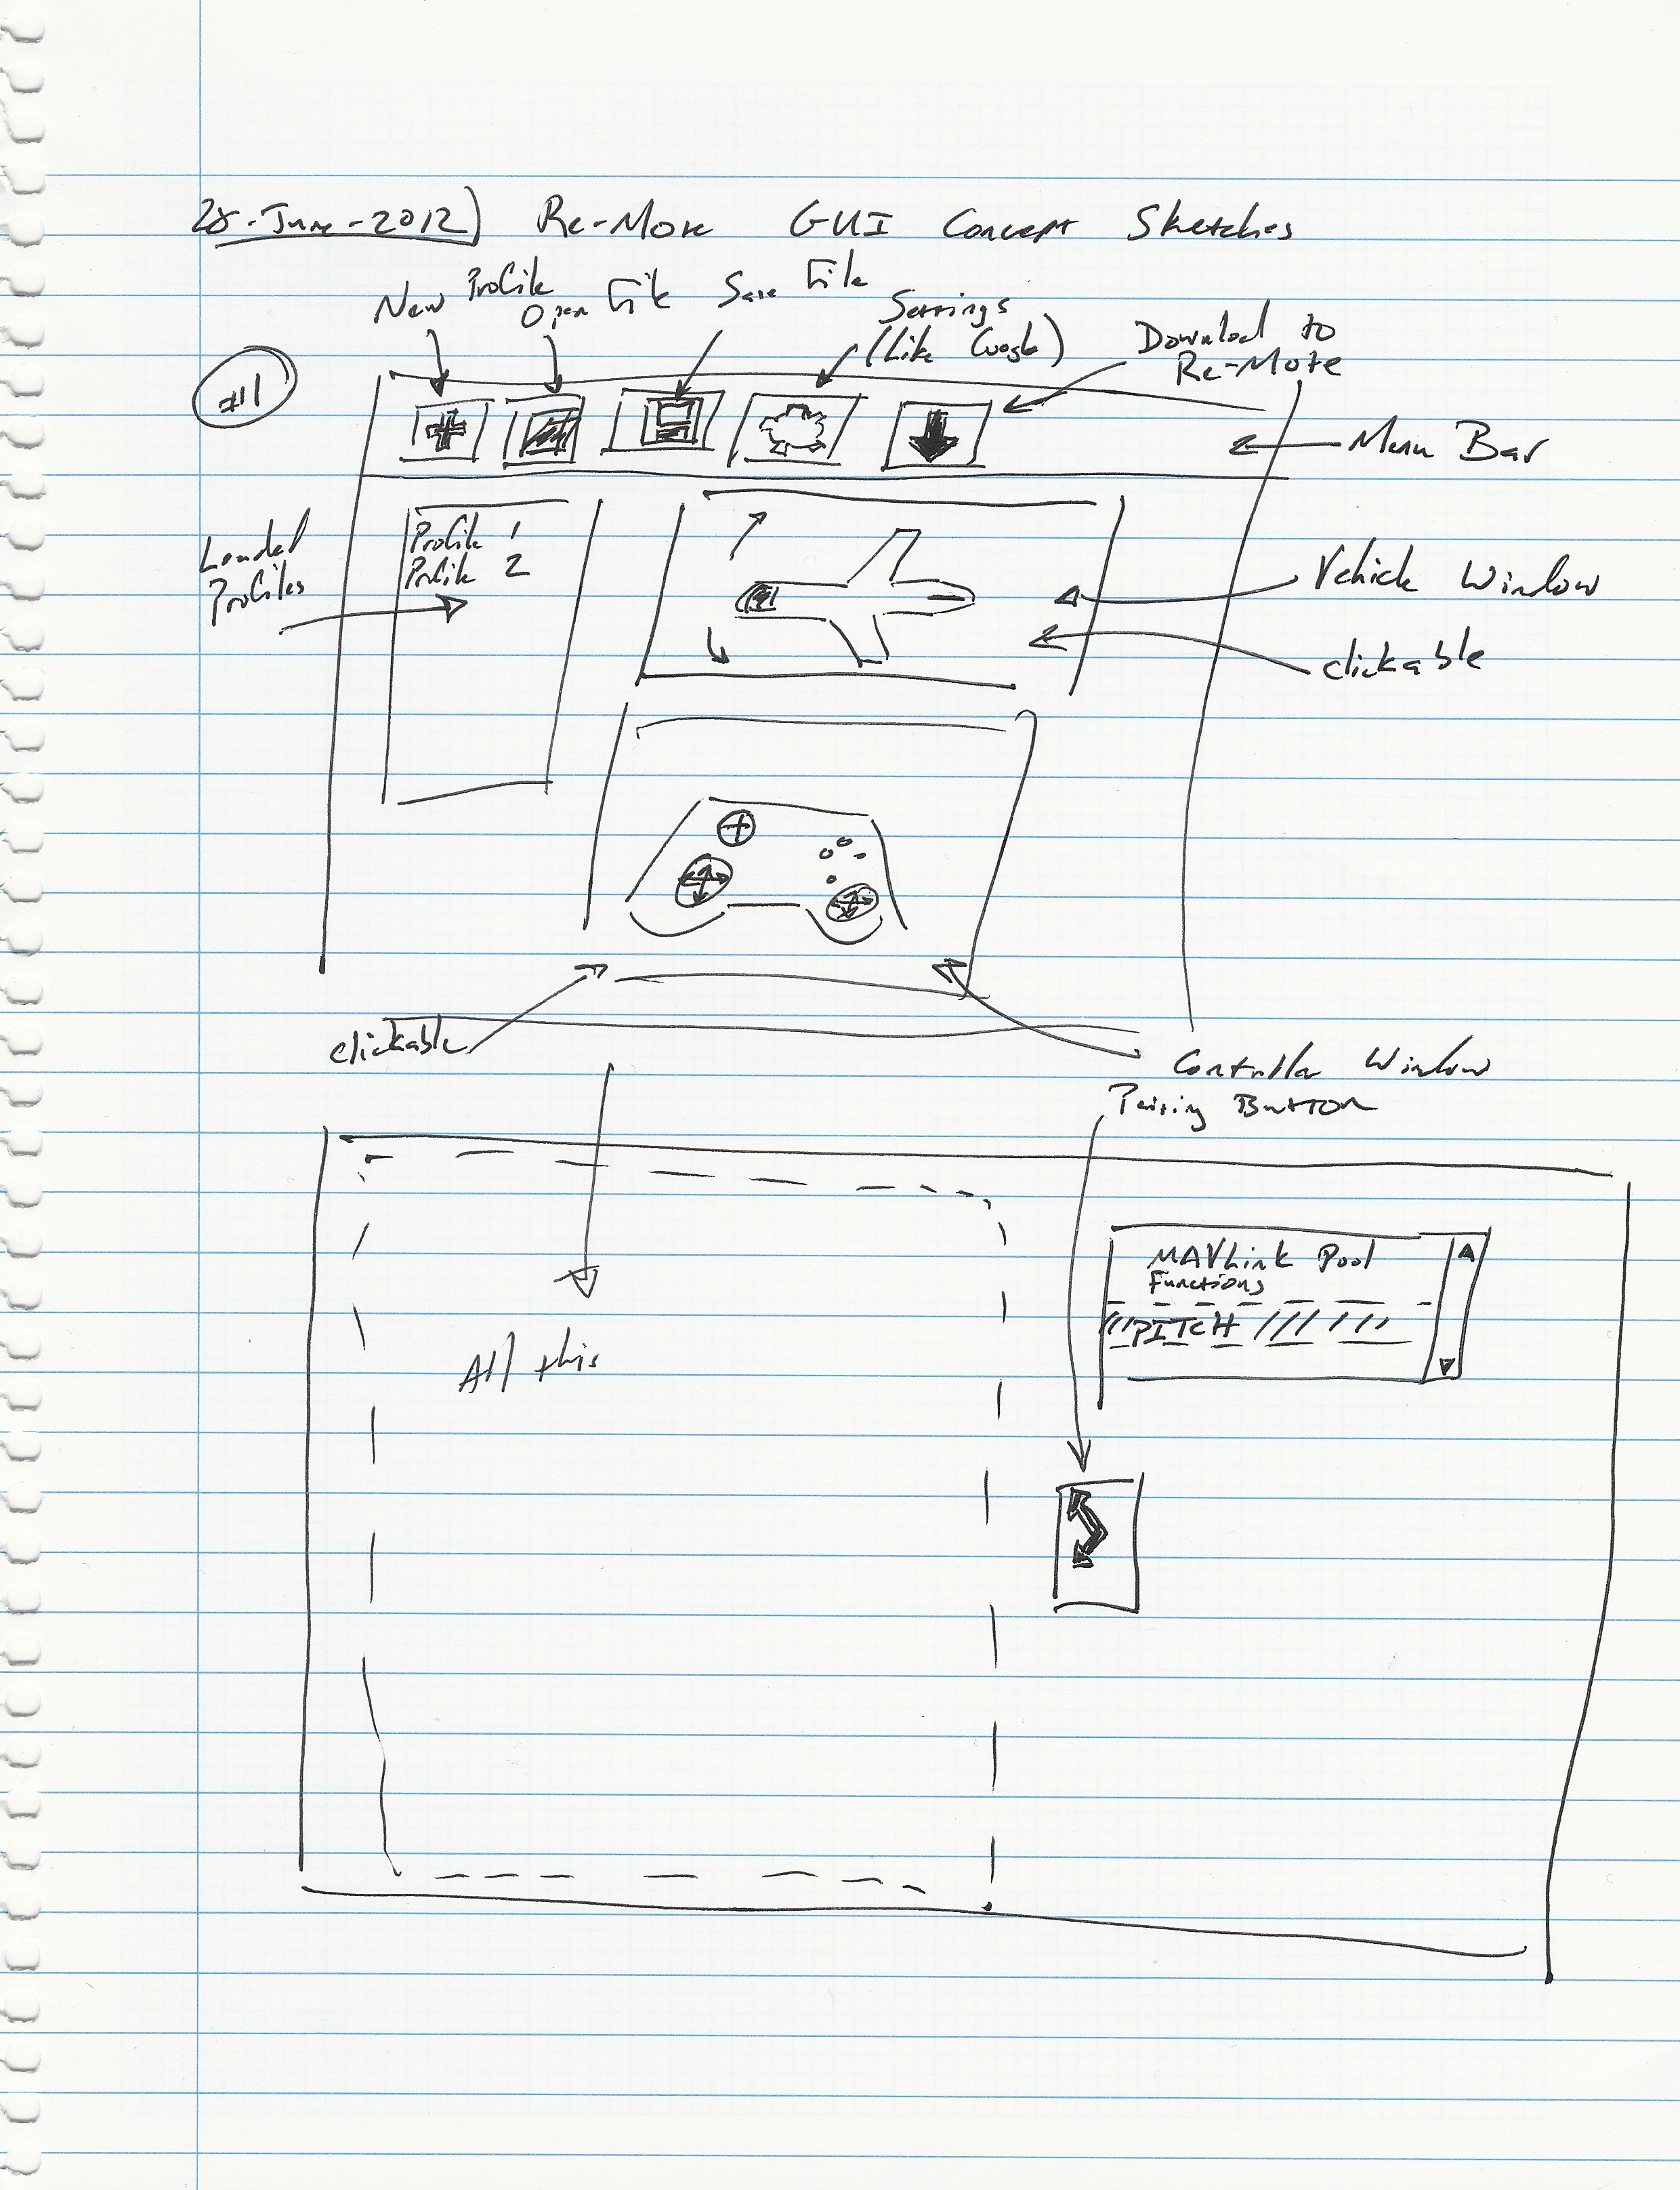 28-June-2012) Re-Mote GUI Concept Sketches
New Profile
Open File
Save File
Settings
(Like Google)
Download to
Re-Mote
#1
Menu Bar
Loaded
Profiles
Profile 1
Profile 2
Vehicle Window
clickable
clickable
Controller Window
Pairing Button
MAVLink Pool
Functions
PITCH
All this